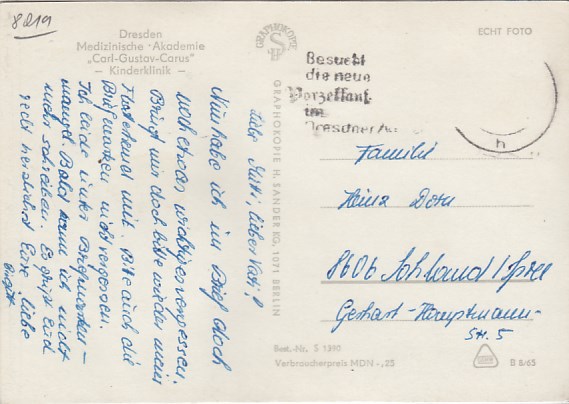 8219
Dresden
Medizinische Akademie
„Carl-Gustav-Carus"
— Kinderklinik —
Liebe Mutti, lieber Vati!
Nun habe ich im Brief doch
noch etwas wichtiges vergessen.
Bringt mir doch bitte wieder mein
mit. Bitte auch die
Briefmarken nicht vergessen.
Ich leide unter Briefmarken-
mangel. Bald kann ich nicht
mehr schreiben. Es grüßt Euch
recht herzlichst Eure liebe
GRAPHOKOPIE
GRAPHOKOPIE H. SANDER KG, 1071 BERLIN
ECHT FOTO
Besucht
die neue
Porzellan
im
Dresdner
h
Familie
Heinz Dorn
8606 Sohland/Spree
Gerhart-Hauptmann-
Str. 5
Best.-Nr. S 1390
Verbraucherpreis MDN -,25
B 8/65